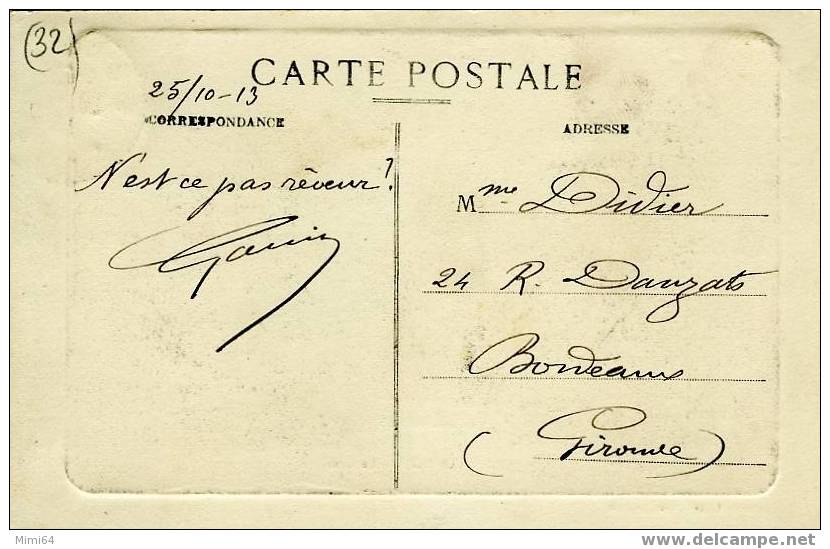 (32)
CARTE POSTALE
25/10-13
CORRESPONDANCE
ADRESSE
N'est ce pas rêveur?
Mme Didier
24 R. Dauzats
Bordeaux
(Gironde)
Mimi64
delcampe.net